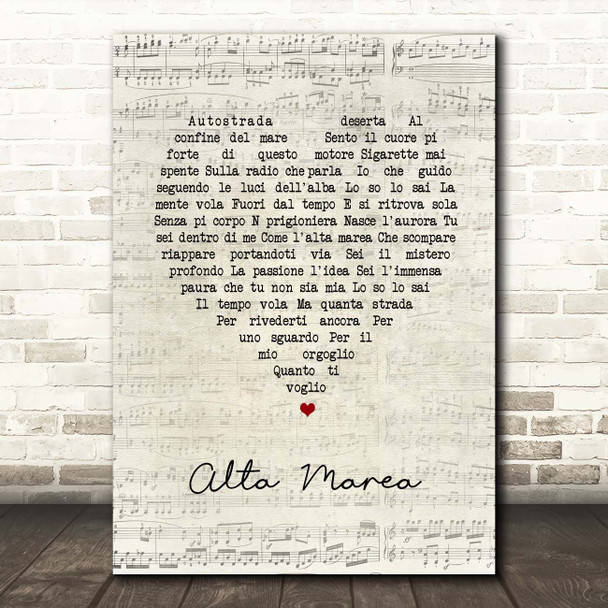 Autostrada deserta Al
confine del mare Sento il cuore pi
forte di questo motore Sigarette mai
spente Sulla radio che parla Io che guido
seguendo le luci dell'alba Lo so lo sai La
mente vola Fuori dal tempo E si ritrova sola
Senza pi corpo N prigioniera Nasce l'aurora Tu
sei dentro di me Come l'alta marea Che scompare
riappare portandoti via Sei il mistero
profondo La passione l'idea Sei l'immensa
paura che tu non sia mia Lo so lo sai
Il tempo vola Ma quanta strada
Per rivederti ancora Per
uno sguardo Per il
mio orgoglio
Quanto ti
voglio
Alta Marea